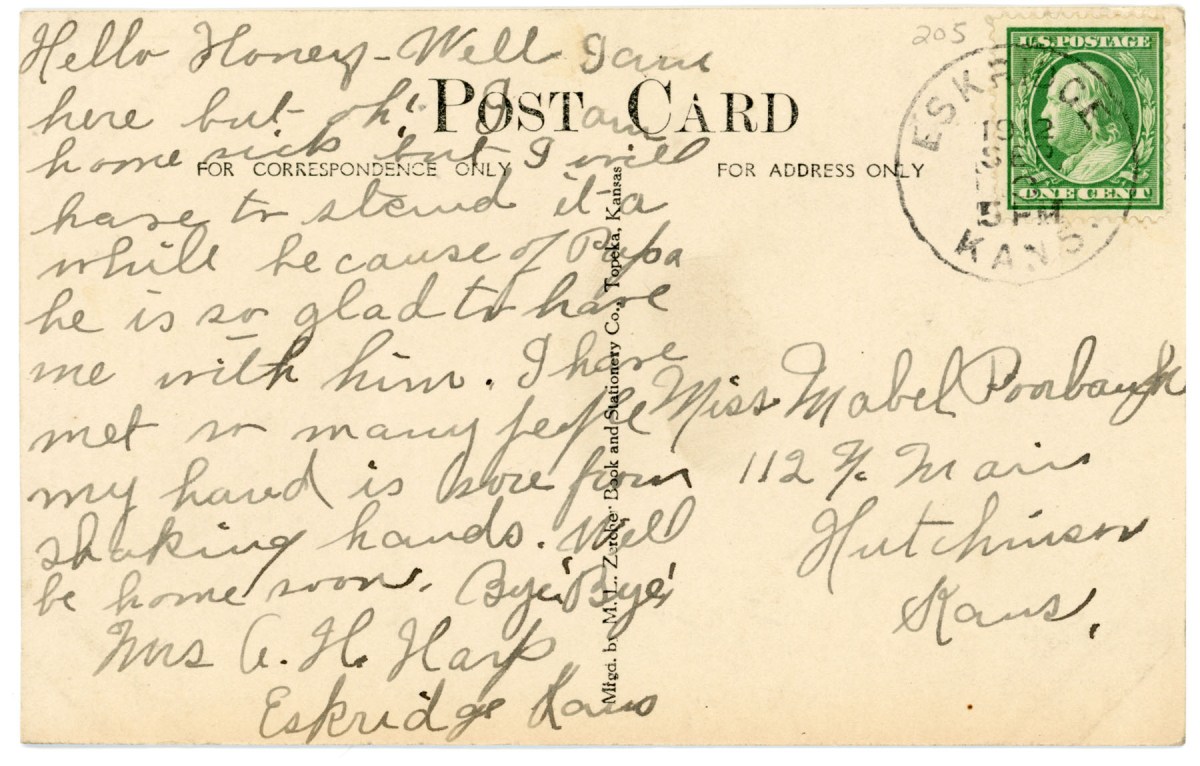 205
U.S. POSTAGE
ONE CENT
ESKRIDGE
1912
5 PM
KANS.
POST CARD
FOR CORRESPONDENCE ONLY
FOR ADDRESS ONLY
Hello Honey - Well I am
here but oh! I am
home sick but I will
have to stand it a
whill because of Papa
he is so glad to have
me with him. I have
met so many people
my hand is sore from
shaking hands. Will
be home soon. Bye Bye
Mrs A. H. Harp
Eskridge Kans
Mfgd. by M. L. Zercher Book and Stationery Co., Topeka, Kansas
Miss Mabel Poorbaugh
112 N. Main
Hutchinson
Kans.